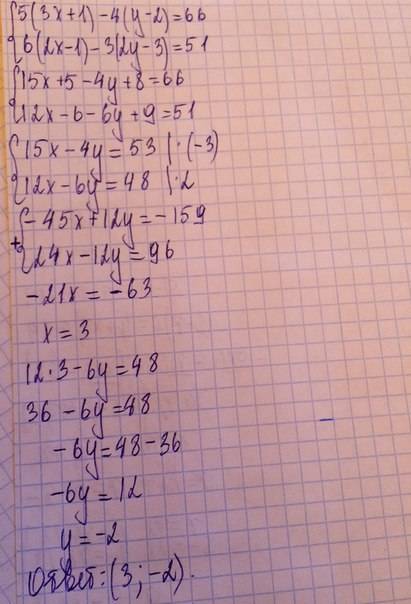 {5(3x+1)-4(y-2)=66
{6(2x-1)-3(2y-3)=51
{15x+5-4y+8=66
{12x-6-6y+9=51
{15x-4y=53 |·(-3)
{12x-6y=48 |·2
+{-45x+12y=-159
{24x-12y=96
-21x=-63
x=3
12·3-6y=48
36-6y=48
-6y=48-36
-6y=12
y=-2
Ответ: (3; -2).